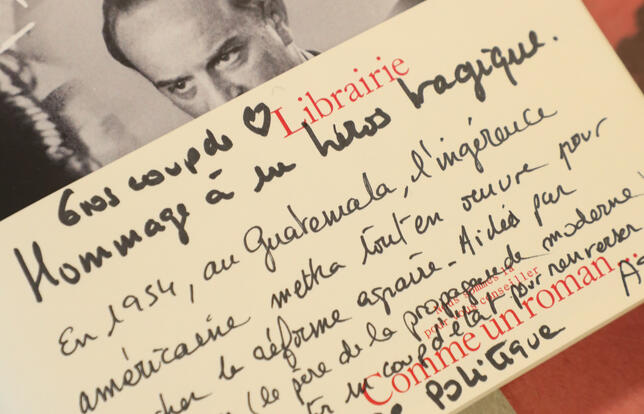 Gros coup de ♡
Librairie
Hommage à un héros tragique.
En 1954, au Guatemala, l'ingérence
américaine mettra tout en œuvre pour
la réforme agraire. Aidés par
(le père de la propagande moderne
un coup d'état pour renverser
Politique
Nous sommes là
pour vous conseiller
Comme un roman...